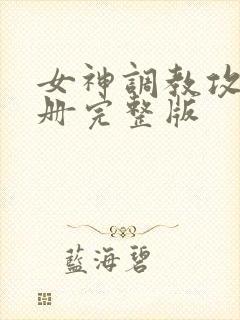 女神調教攻
册完整版
藍海碧